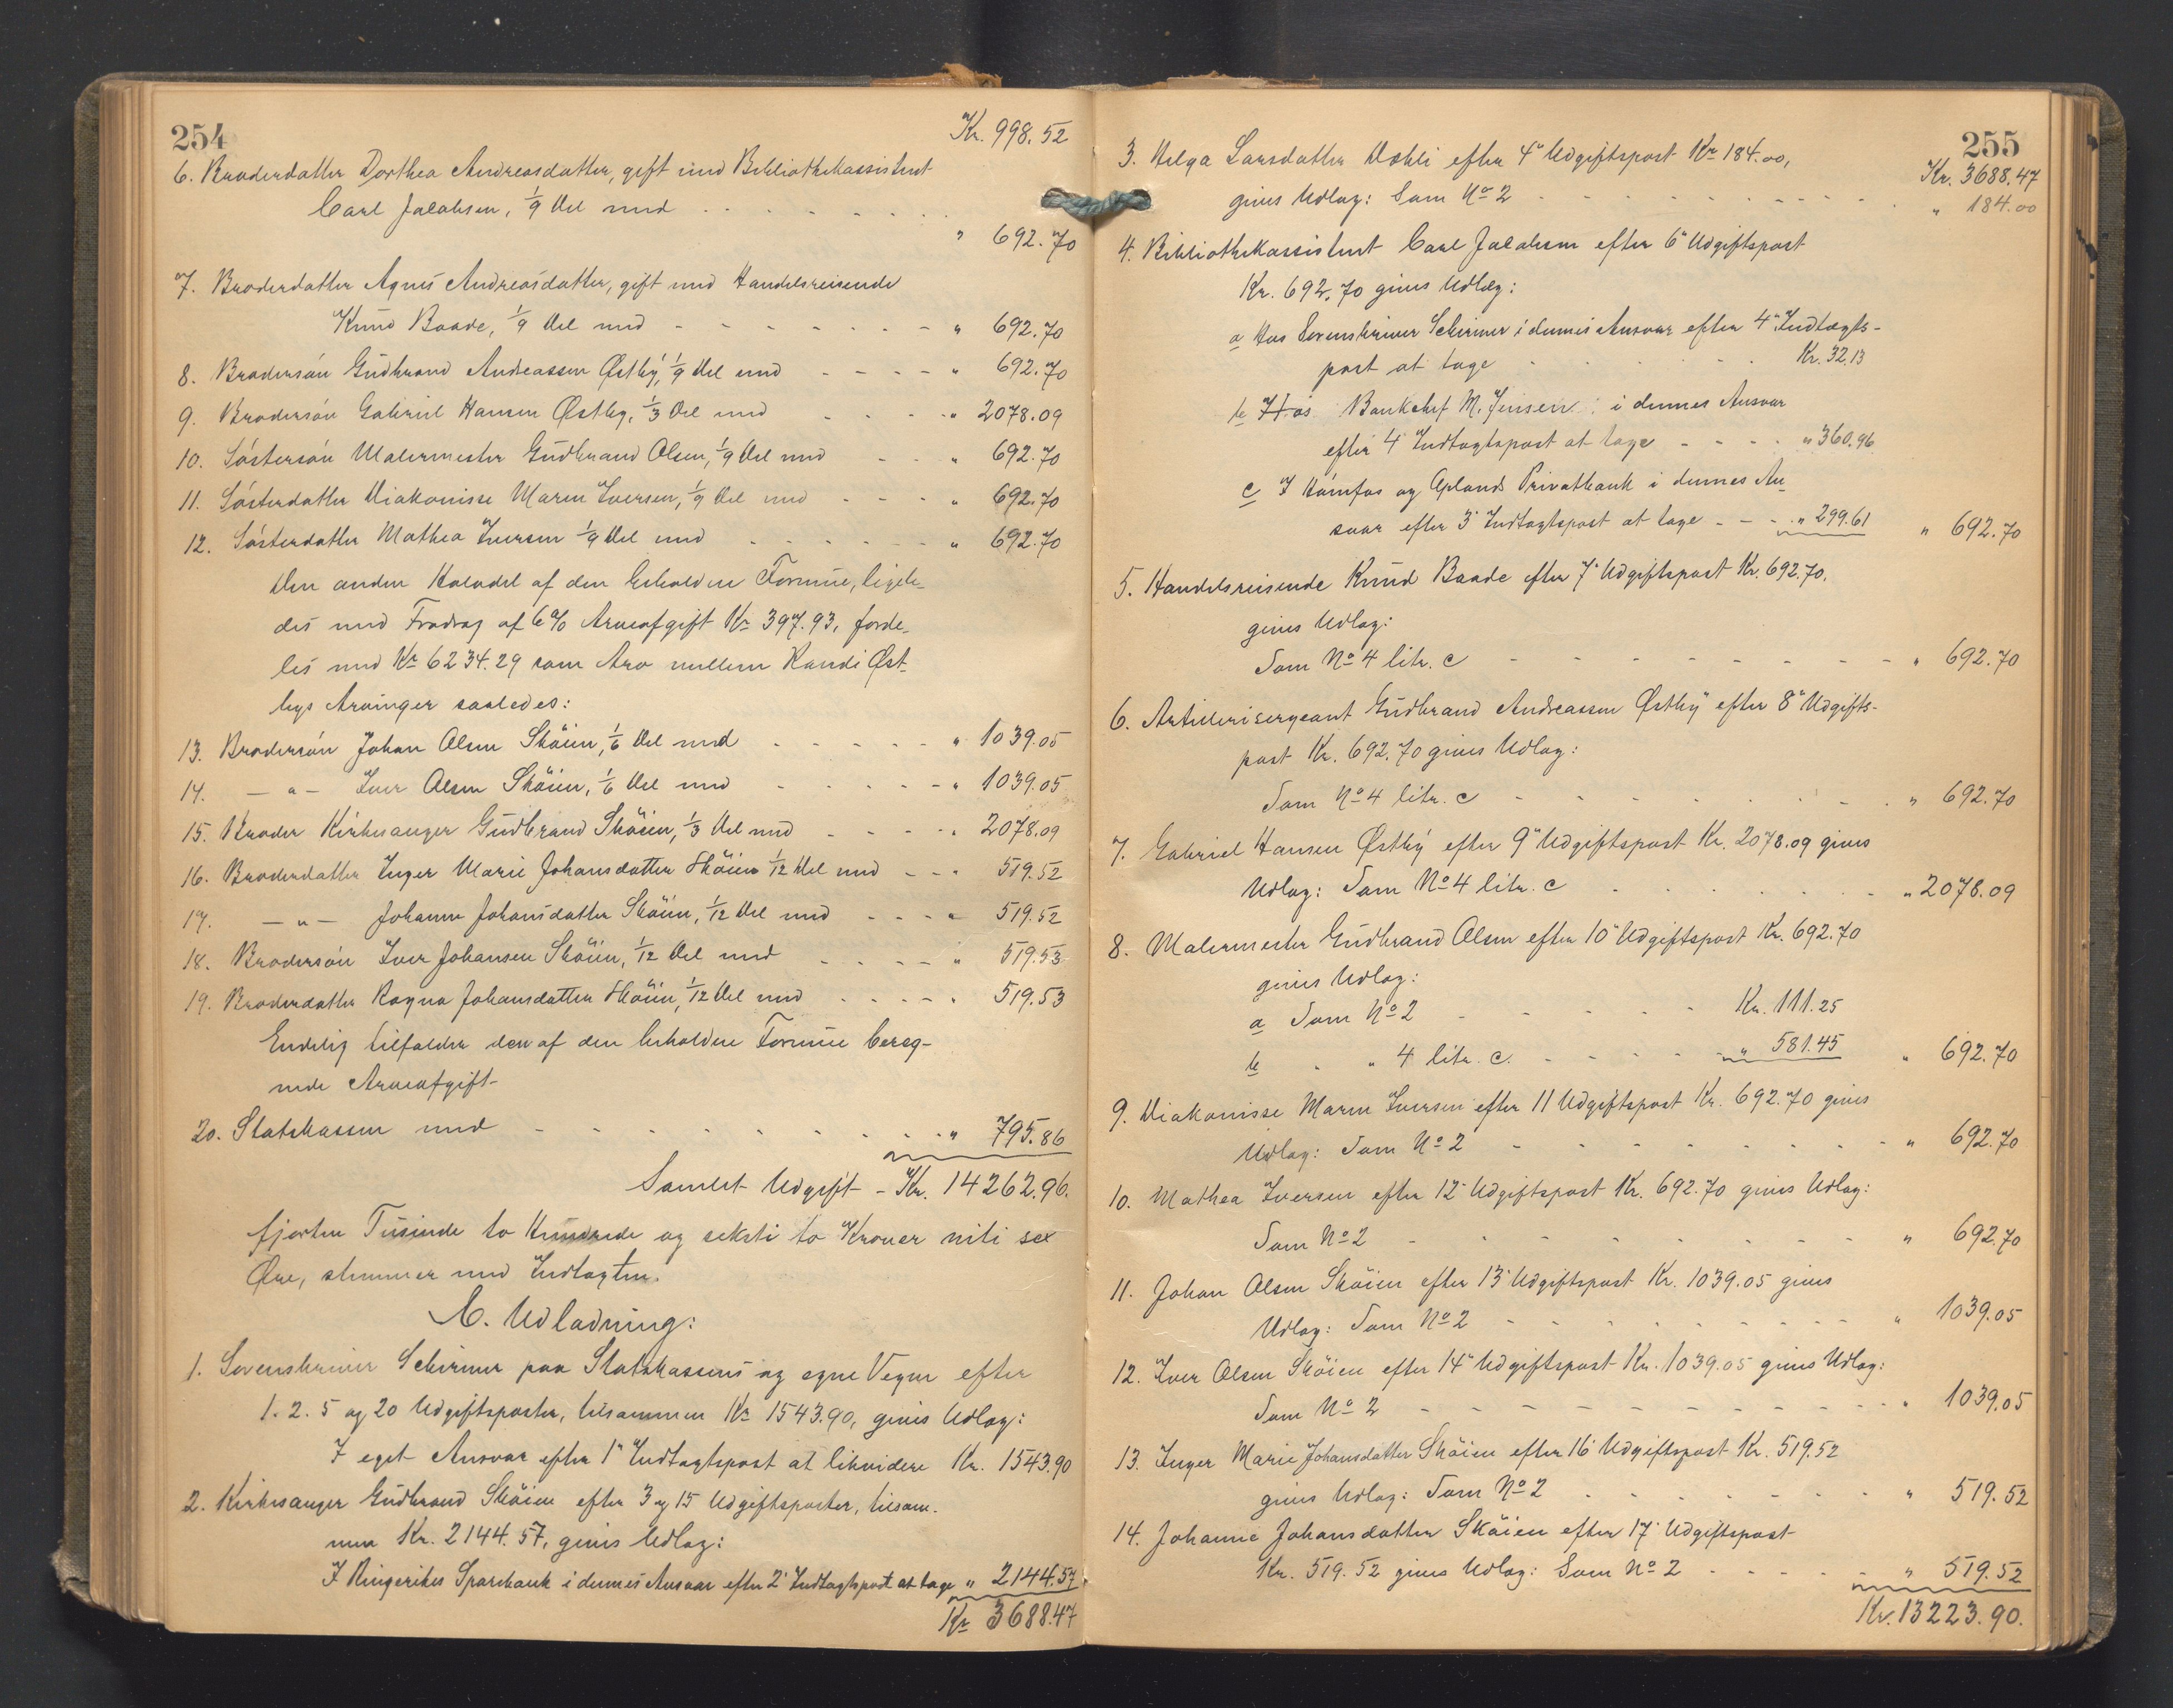 254
Kr. 998.52
6. Broderdatter Dorthea Andreasdatter, gift med Bibliothekassistent
Carl Jacobsen, 1/9 Del med
" 692.70
7. Broderdatter Agnes Andreasdatter, gift med Handelsreisende
Knud Baade, 1/9 Del med - - - " 692.70
8. Brodersøn Gudbrand Andreassen Østby, 1/9 Del med - - - " 692.70
9. Brodersøn Gabriel Hansen Østby, 1/3 Del med - - - " 2078.09
10. Søstersøn Malermester Gudbrand Olsen, 1/9 Del med - - " 692.70
11. Søsterdatter Diakonisse Maren Iversen, 1/9 Del med - - " 692.70
12. Søsterdatter Mathea Iversen 1/9 Del med - - - " 692.70
Den anden Halvdel af den beholdne Formue, ligele-
des med Fradrag af 6% Arveafgift Kr 397.93, forde-
les med Kr 6234.29 som Arv mellem Randi Øst-
bys Arvinger saaledes:
13. Brodersøn Johan Olsen Skøien, 1/6 Del med - - - " 1039.05
14. - " - Iver Olsen Skøien, 1/6 Del med - - - " 1039.05
15. Broder Kirkesanger Gudbrand Skøien, 1/3 Del med - - - " 2078.09
16. Broderdatter Inger Marie Johansdatter Skøien 1/12 Del med - - " 519.52
17. - " - Johanne Johansdatter Skøien, 1/12 Del med - - - " 519.52
18. Brodersøn Iver Johansen Skøien, 1/12 Del med - - - " 519.53
19. Broderdatter Ragna Johansdatter Skøien, 1/12 Del med - - - " 519.53
Endelig tilfalder den af den beholdne Formue bereg-
nede Arveafgift
20. Statskassen med - - - " 795.86
Samlet Udgift - Kr. 14262.96.
fjorten Tusinde to Hundrede og seksti to Kroner niti sex
Øre, stemmer med Indtægten.
C. Udlodning:
1. Sorenskriver Schirmer paa Statskassens og egne Vegne efter
1. 2. 5 og 20 Udgiftsposter, tilsammen Kr 1543.90, gives Udlæg:
I eget Ansvar efter 1" Indtægtspost at likvidere Kr. 1543.90
2. Kirkesanger Gudbrand Skøien efter 3 og 15 Udgiftsposter, tilsam-
men Kr. 2144.57, gives Udlæg:
I Ringerikes Sparebank i dennes Ansvar efter 2' Indtægtspost at tage " 2144.57
Kr 3688.47
255
Kr. 3688.47
3. Helga Larsdatter Dæhli efter 4" Udgiftspost Kr 184.00,
gives Udlæg: Som No 2 - - - " 184.00
4. Bibliothekassistent Carl Jacobsen efter 6" Udgiftspost
Kr. 692.70 gives Udlæg:
a Hos Sorenskriver Schirmer i dennes Ansvar efter 4" Indtægts-
post at tage - - - Kr. 32.13
b Hos Bankchef M. Jensen i dennes Ansvar
efter 4' Indtægtspost at tage - - - " 360.96
c I Hønefos og Oplands Privatbank i dennes An-
svar efter 3' Indtægtspost at tage - - - " 299.61 " 692.70
5. Handelsreisende Knud Baade efter 7' Udgiftspost Kr. 692.70,
gives Udlæg:
Som No 4 litr. c - - - " 692.70
6. Artillerisergeant Gudbrand Andreassen Østby efter 8" Udgifts-
post Kr. 692.70 gives Udlæg:
Som No 4 litr. c - - - " 692.70
7. Gabriel Hansen Østby efter 9" Udgiftspost Kr. 2078.09 gives
Udlæg: Som No 4 litr. c - - - " 2078.09
8. Malermester Gudbrand Olsen efter 10" Udgiftspost Kr. 692.70
gives Udlæg:
a Som No 2 - - - Kr. 111.25
b " " 4 litr. c. - - - " 581.45 " 692.70
9. Diakonisse Maren Iversen efter 11 Udgiftspost Kr. 692.70 gives
Udlæg: Som No 2 - - - " 692.70
10. Mathea Iversen efter 12' Udgiftspost Kr. 692.70 gives Udlæg:
Som No 2 - - - " 692.70
11. Johan Olsen Skøien efter 13' Udgiftspost Kr. 1039.05 gives
Udlæg: Som No 2 - - - " 1039.05
12. Iver Olsen Skøien efter 14" Udgiftspost Kr. 1039.05 gives Udlæg:
Som No 2 - - - " 1039.05
13. Inger Marie Johansdatter Skøien efter 16' Udgiftspost Kr. 519.52
gives Udlæg: Som No 2 - - - " 519.52
14. Johanne Johansdatter Skøien efter 17' Udgiftspost
Kr. 519.52 gives Udlæg: Som No 2 - - - " 519.52
Kr. 13223.90.